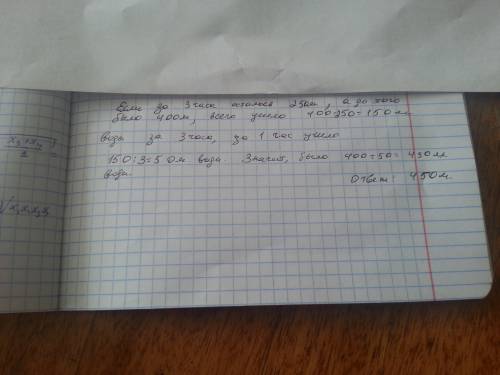 Если за 3 часа осталось 250м, а до того
было 400м, всего ушло 400-250=150м
воды за 3 часа, за 1 час ушло
150:3=50м воды. Значит, было 400+50=450м
воды.
Ответ: 450м.
x₃+x₄
3
√x₁x₂x₃